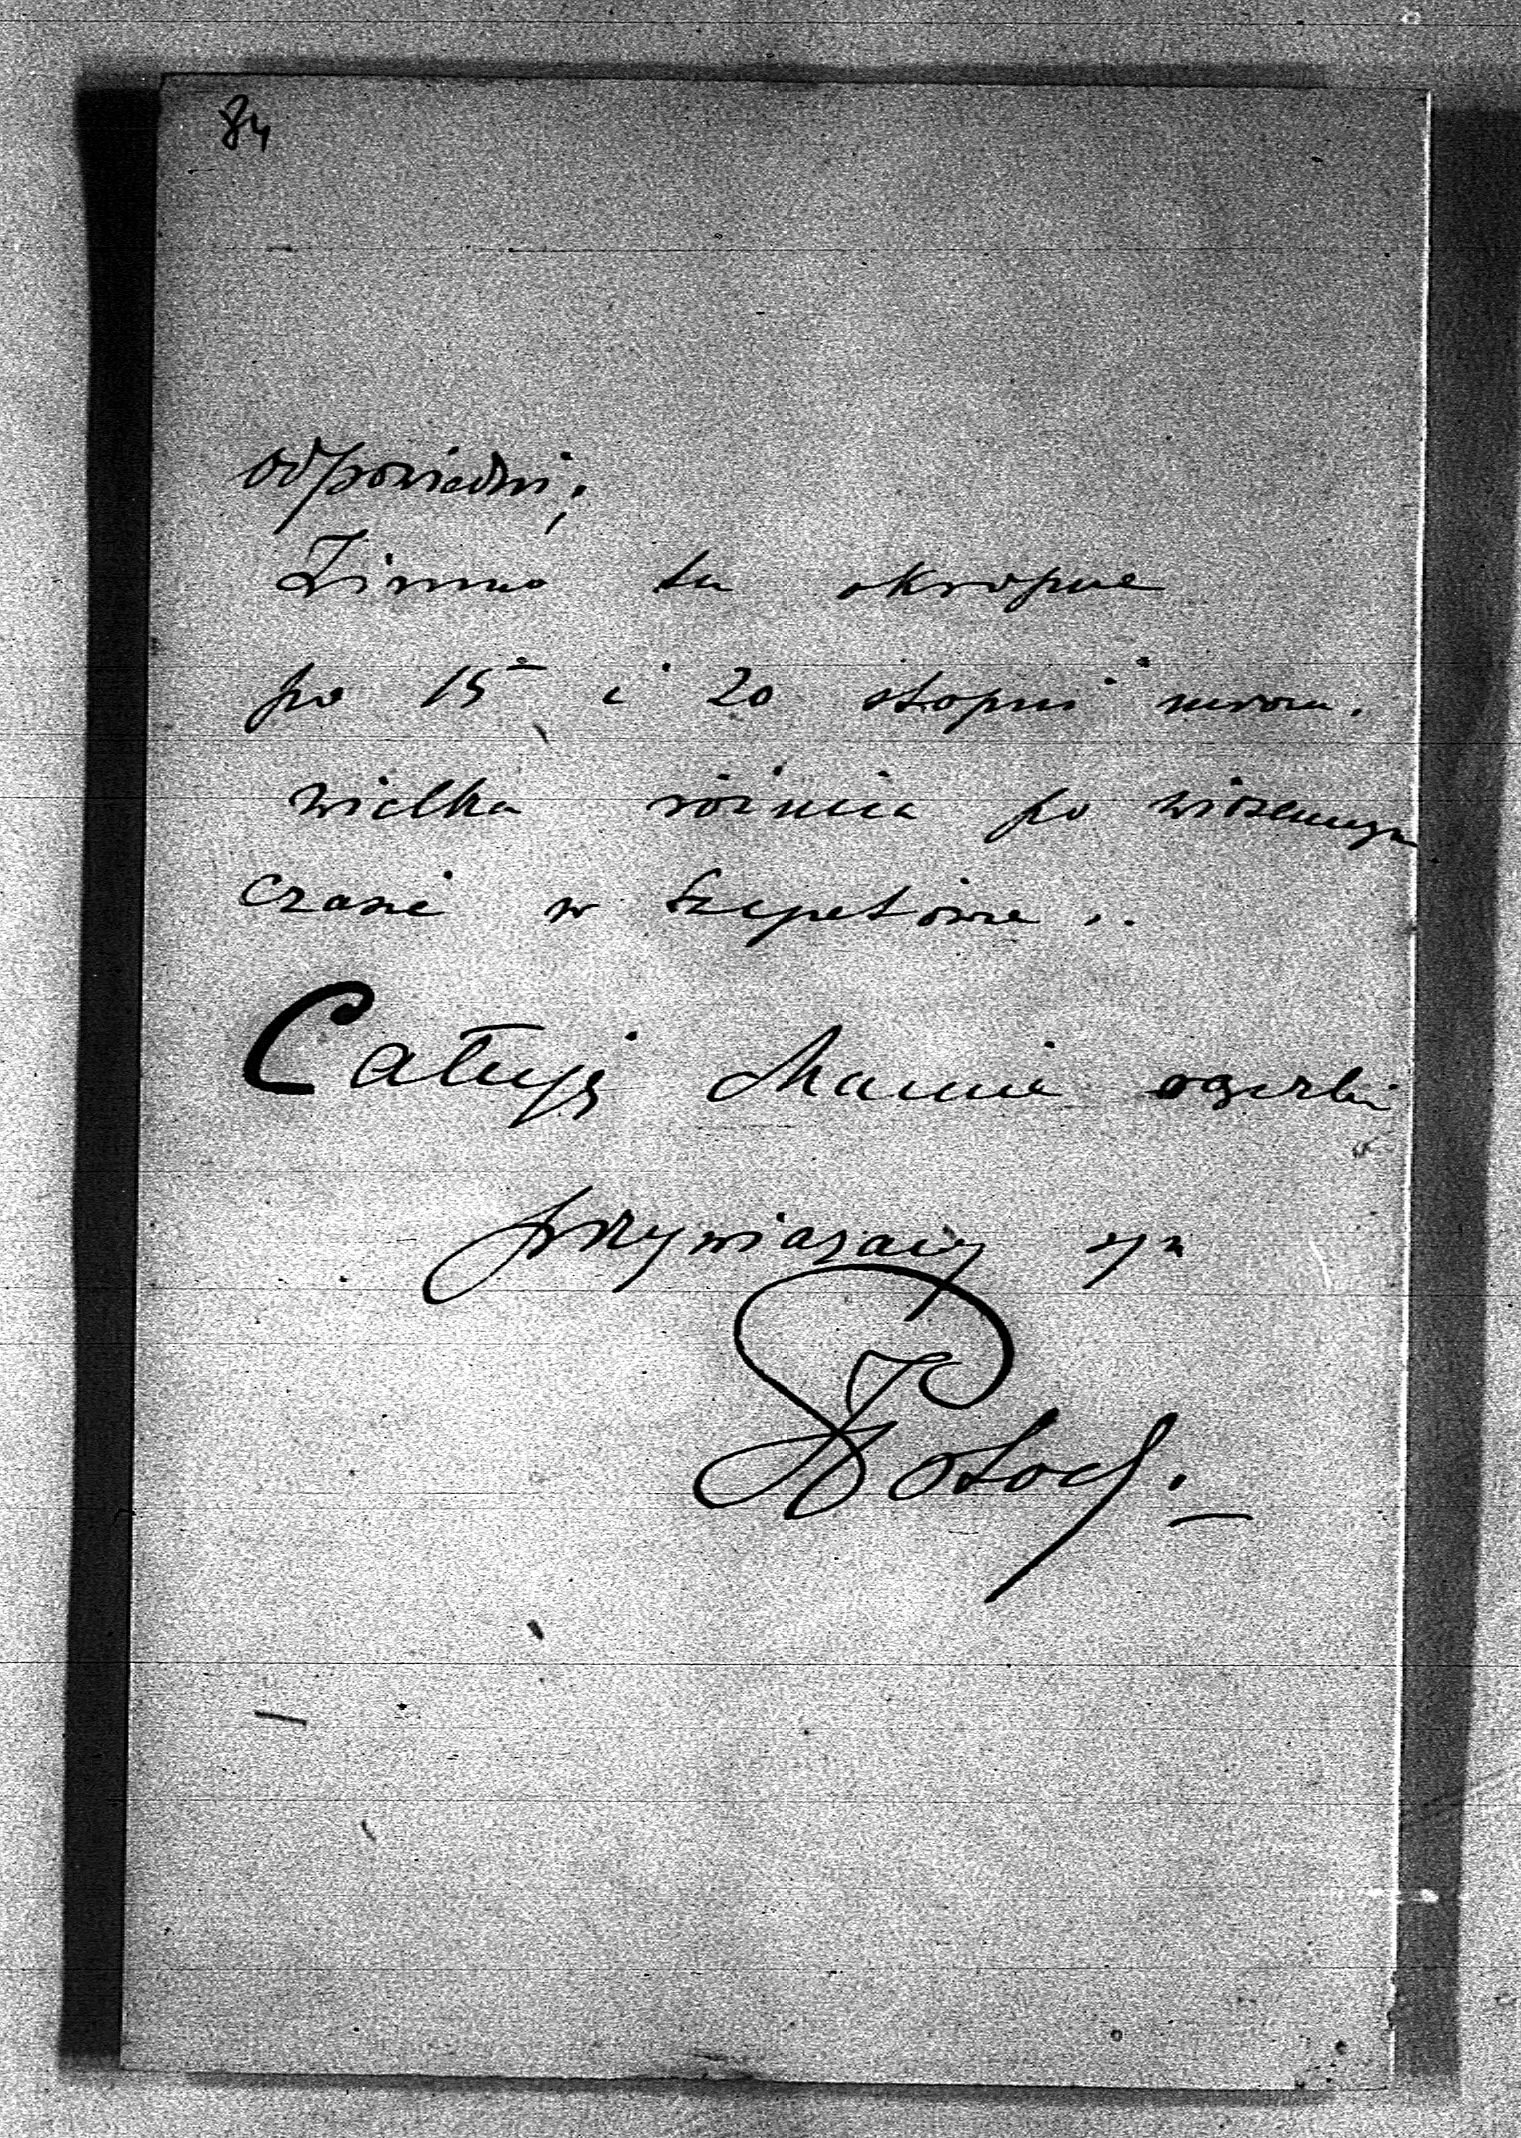 84
odpowiedni;
Zimno tu okropne
po 15 i 20 stopni mrozu.
wielka różnica po wiosennym
czasie w Szepetówce..
Całuję Mamie rączki
przywiązany syn
Potocki.